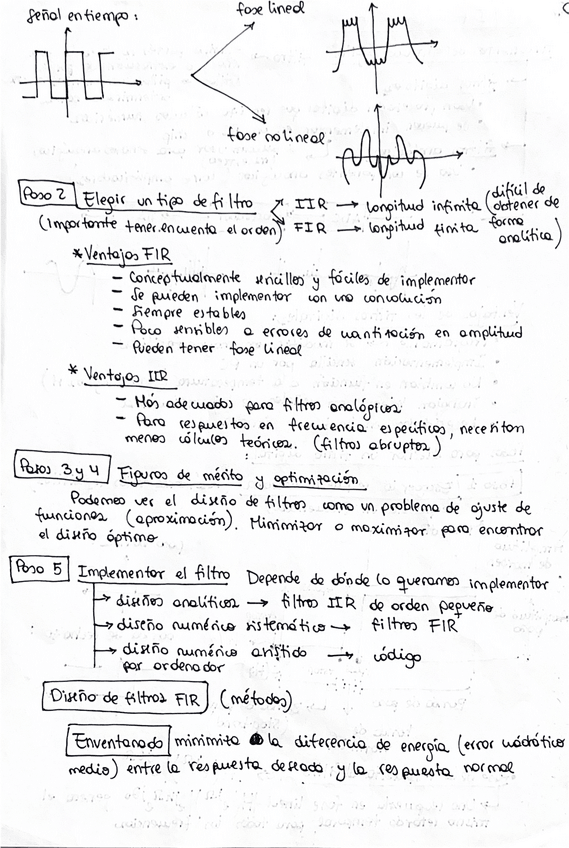 Señal en tiempo:
fase lineal
fase no lineal
Paso 2 Elegir un tipo de filtro
(Importante tener en cuenta el orden)
IIR → longitud infinita (difícil de obtener de forma analítica)
FIR → longitud finita
* Ventajas FIR
- Conceptualmente sencillos y fáciles de implementar
- Se pueden implementar con una convolución
- Siempre estables
- Poco sensibles a errores de cuantización en amplitud
- Pueden tener fase lineal
* Ventajas IIR
- Más adecuados para filtros analógicos
- Para respuestas en frecuencia específicos, necesitan
menos cálculos teóricos. (filtros abruptos)
Pasos 3 y 4 Figuras de mérito y optimización
Podemos ver el diseño de filtros como un problema de ajuste de
funciones (aproximación). Minimizar o maximizar para encontrar
el diseño óptimo.
Paso 5 Implementar el filtro Depende de dónde lo queramos implementar
→ diseños analíticos → filtros IIR de orden pequeño
→ diseño numérico sistemático → filtros FIR
→ diseño numérico asistido → código
por ordenador
Diseño de filtros FIR (métodos)
Enventanado minimiza la diferencia de energía (error cuadrático
medio) entre la respuesta deseada y la respuesta normal